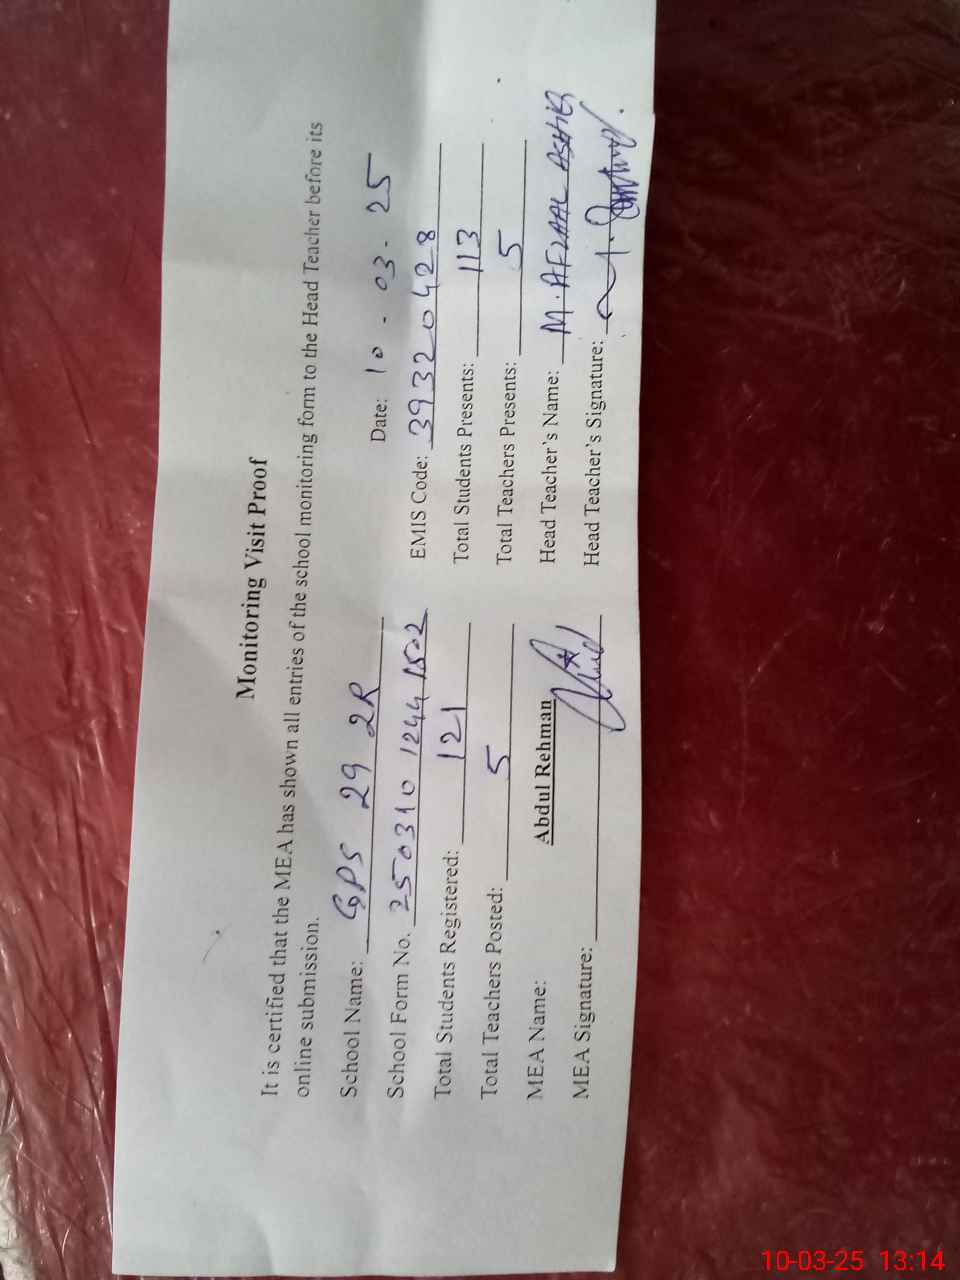 Monitoring Visit Proof
It is certified that the MEA has shown all entries of the school monitoring form to the Head Teacher before its
online submission.
Date: 10 - 03 - 25
School Name: GPS 29 2R
School Form No. 250310 1244 1502 EMIS Code: 39320428
Total Students Registered: 121 Total Students Presents: 113
Total Teachers Posted: 5 Total Teachers Presents: 5
MEA Name: Abdul Rehman Head Teacher's Name: M. AFZAAL
MEA Signature: Head Teacher's Signature:
10-03-25 13:14